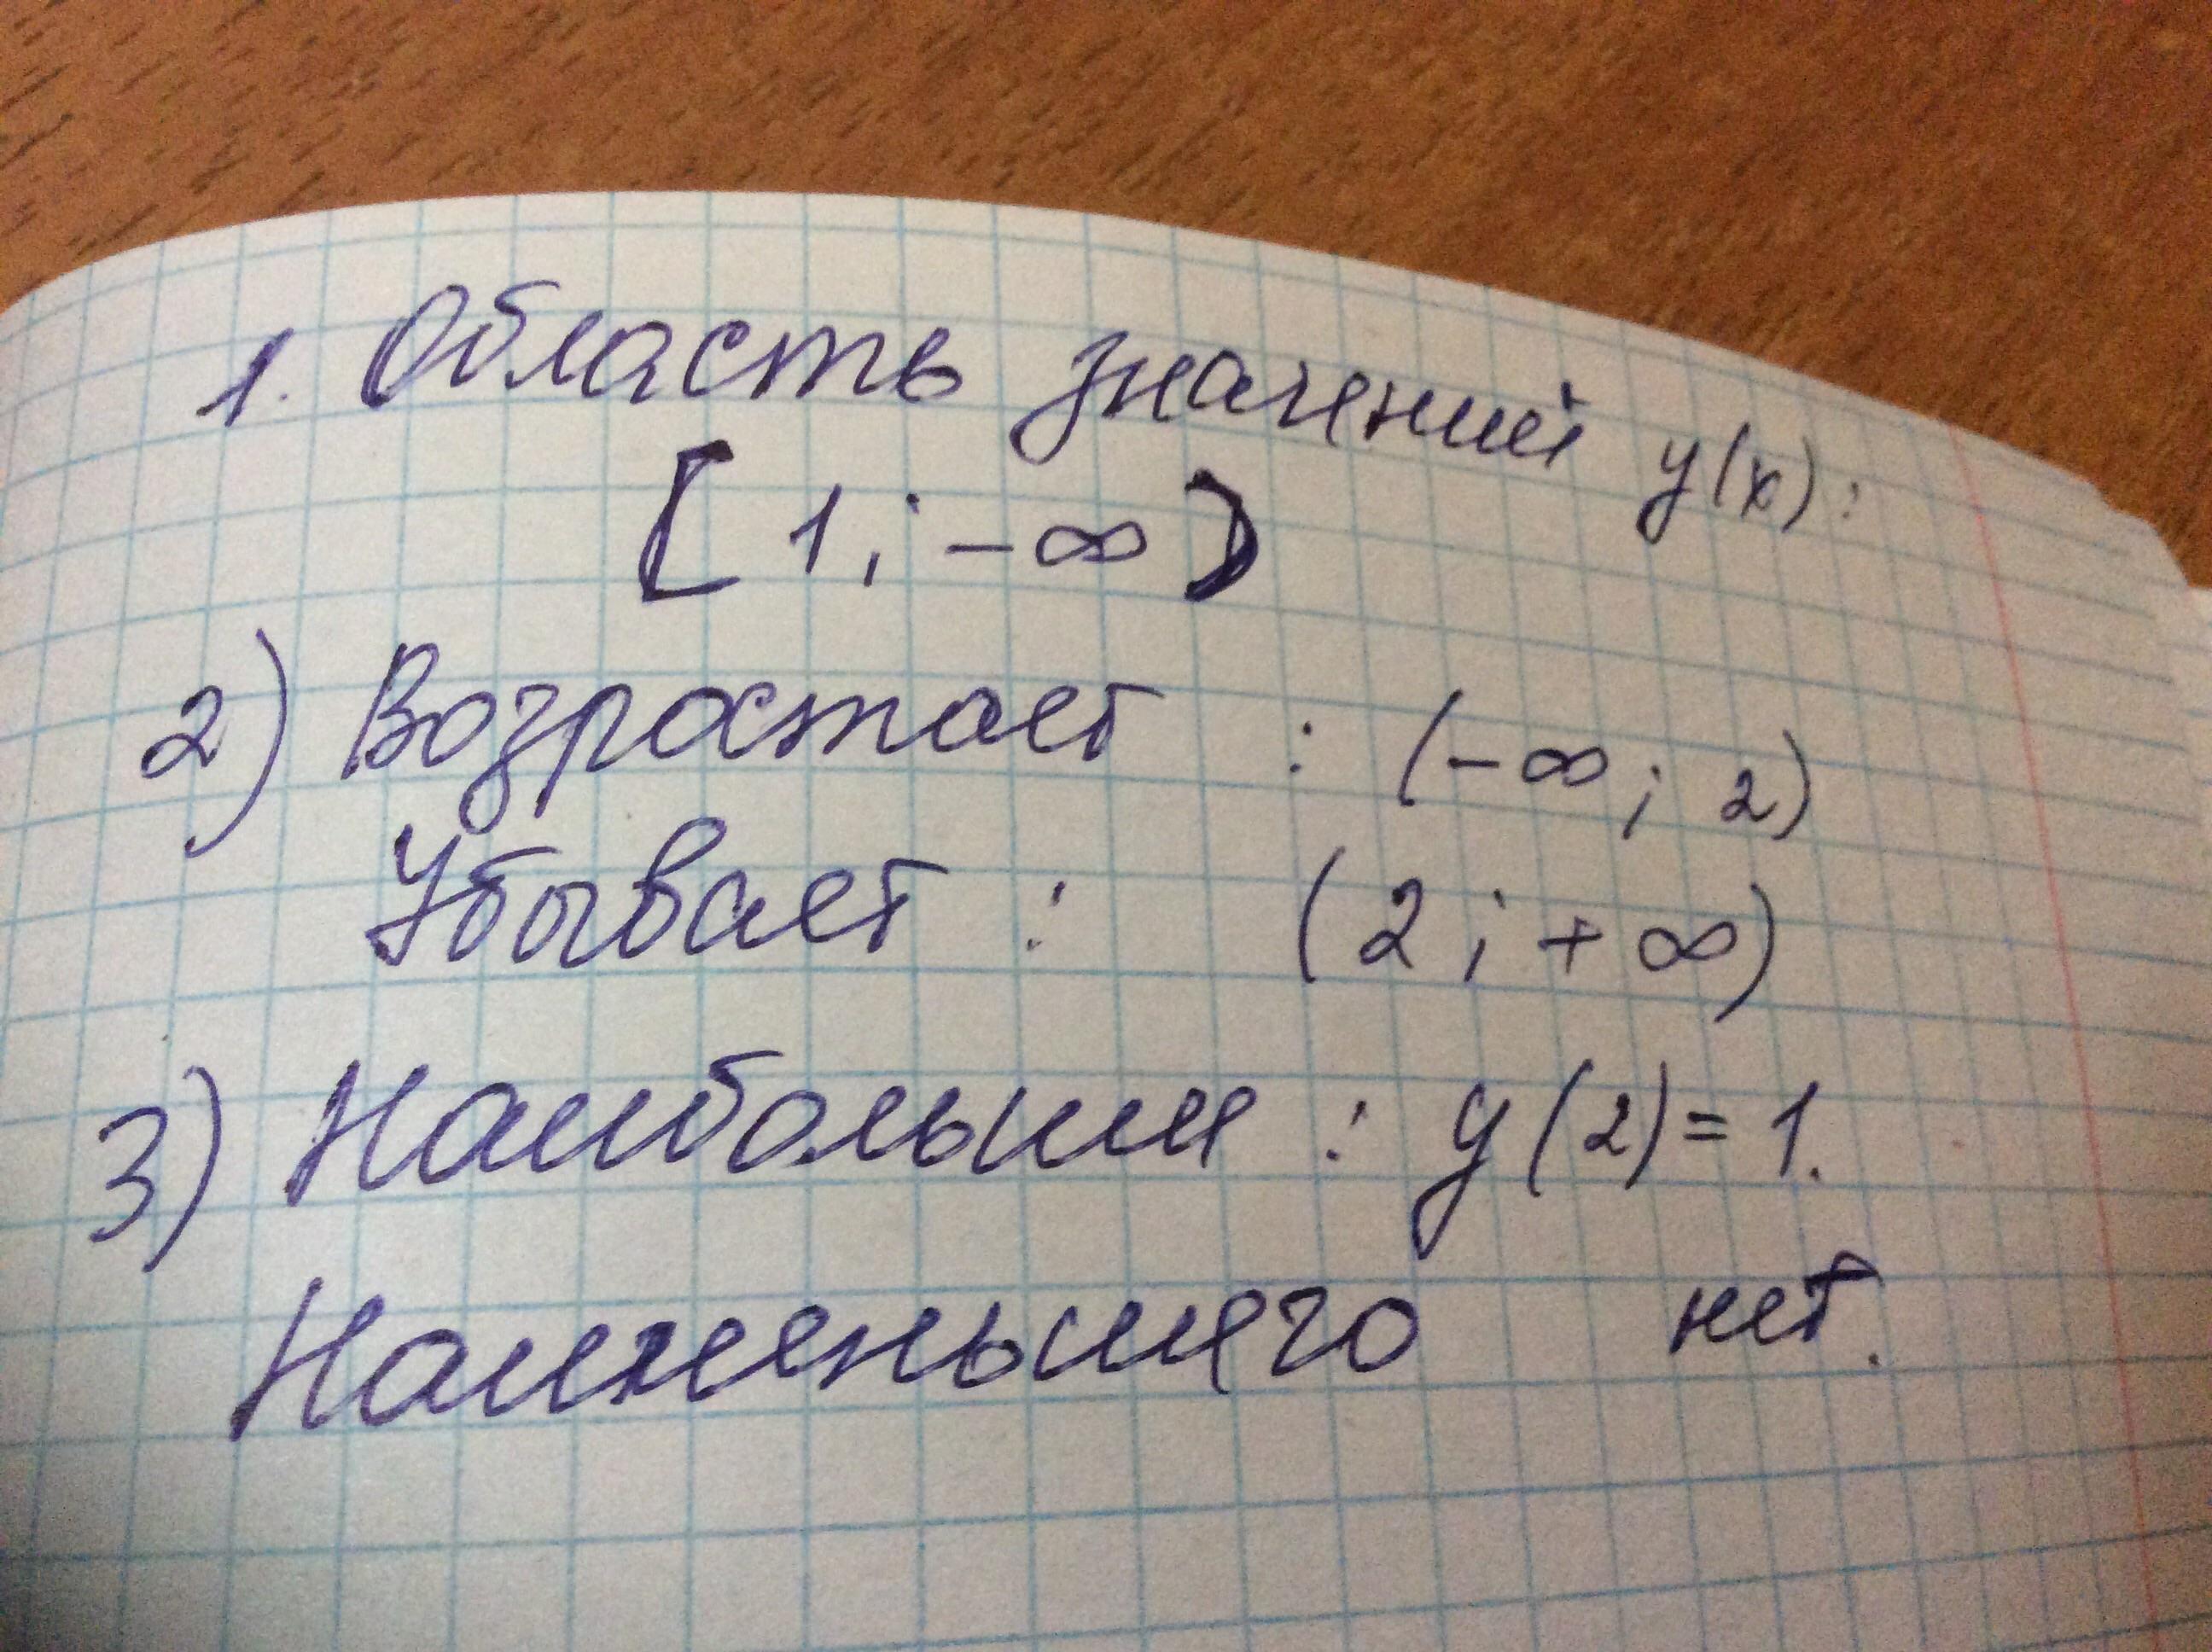 1. Область значений y(x):
[1; -∞)
2) Возростает : (-∞; 2)
Убывает : (2; +∞)
3) Наибольши : y(2) = 1.
Наименьшего нет.